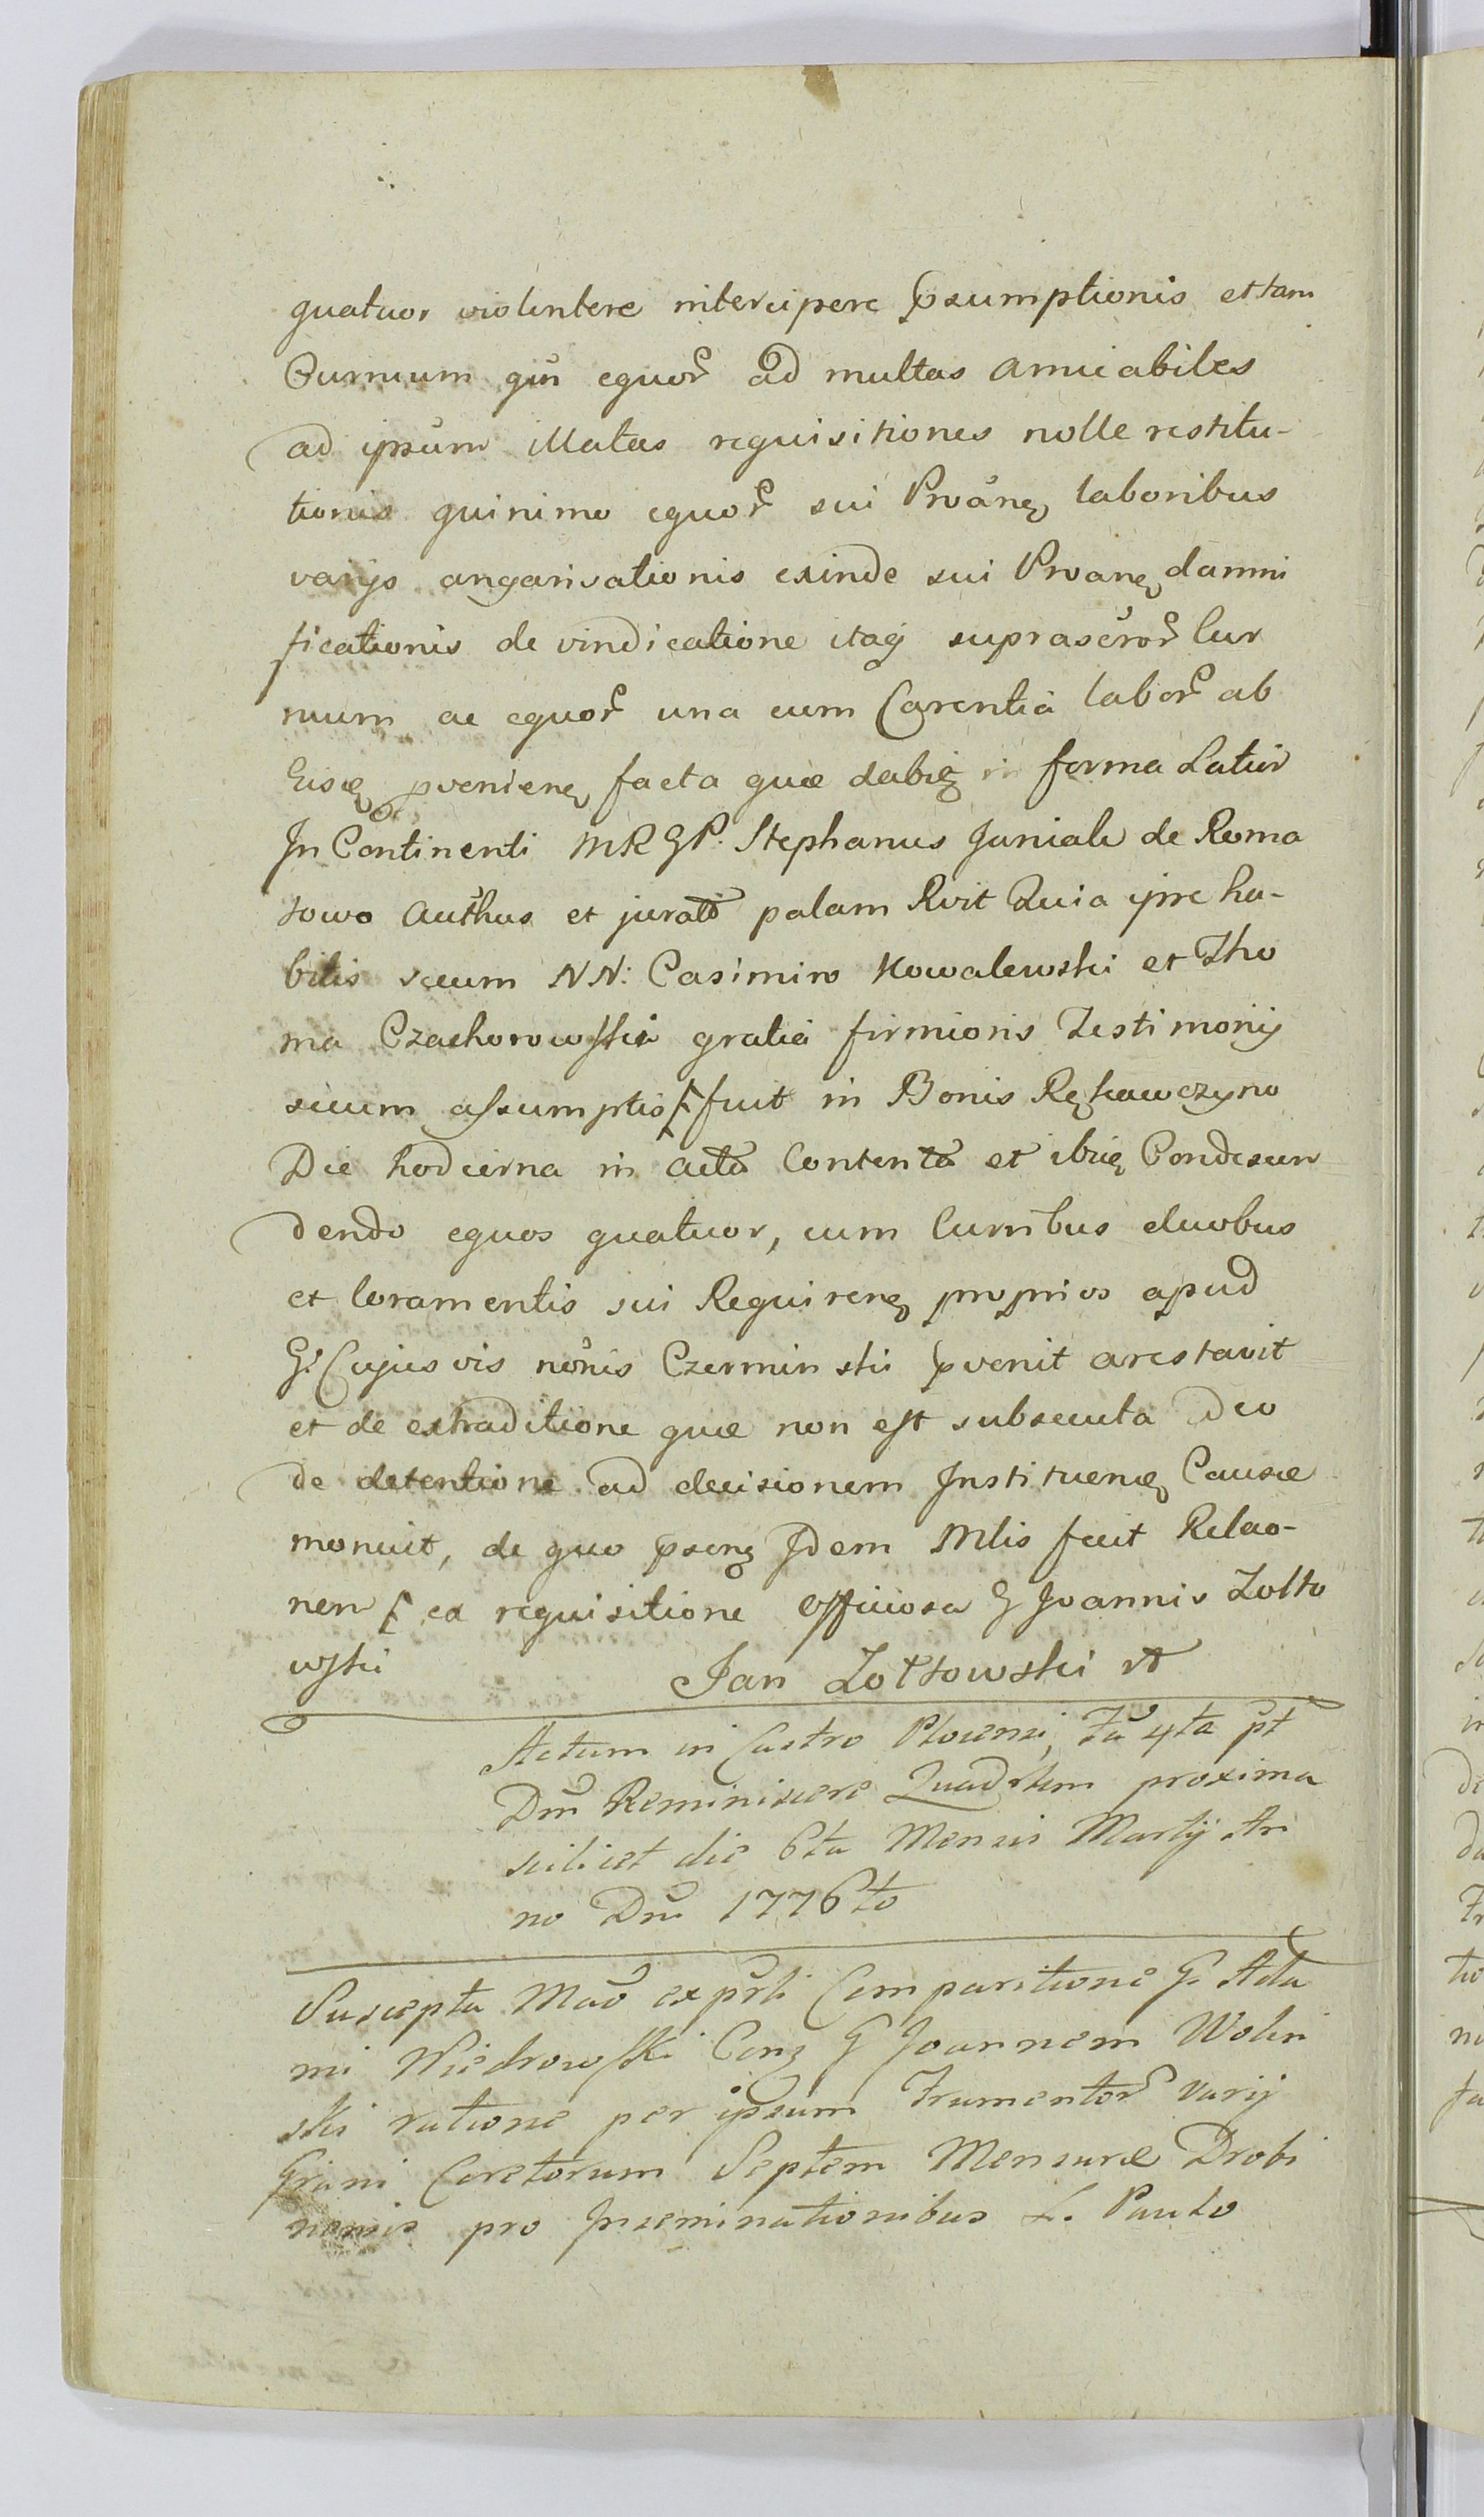 quatuor violentere intercipere psumptionis et tam
Curruum qm equor ad multas amicabiles
ad ipsum illatas requisitiones nolle restitu-
tionis quinimo equor sui Proãnę laboribus
varijs angarisationis exinde sui Proanę damni
ficationis de vindicatione itaq suprascror Cur
ruum ac equor una cum Carentia labor ab
Eisę pvenienę facta quæ dabię in forma Latior
In Continenti MRGP. Stephanus Juniak de Roma
towo Authus et jurats palam Rvit Quia ipse ha-
bitis secum NN: Casimiro Kowalewski et Tho
ma Czachorowski gratia firmioris Testimonij
secum assumptis fuit in Bonis Rękawczyno
Die hodierna in acto Contenta et ibię Condescen
dendo equos quatuor, cum Curribus duobus
et loramentis sui Requirenę proprios apud
G. Cujusvis nonis Czerminski pvenit arestavit
et de extraditione quæ non est subsecuta Deo
de detentione ad decisionem Instituenę Causæ
monuit, de quo psenę Idem Mlis fecit Relao-
nem ex requisitione officiosa G Joannis Zolto
wski
Jan Zołtowski
Actum in Castro Plocensi, Fa 4ta pt
Dm Reminiscere Quadrlem proxima
scilicet die 6ta Mensis Martij An
no Dni 1776to
Suscepta Mao ex prti Comparitione G. Ada
mi Wiedrowski Conę G Joannem Wolin
ski ratione per ipsum Frumentor Varij
Grani Coretorum Septem Mensuræ Drobi
nensis pro Inseminationibus L. Paulo